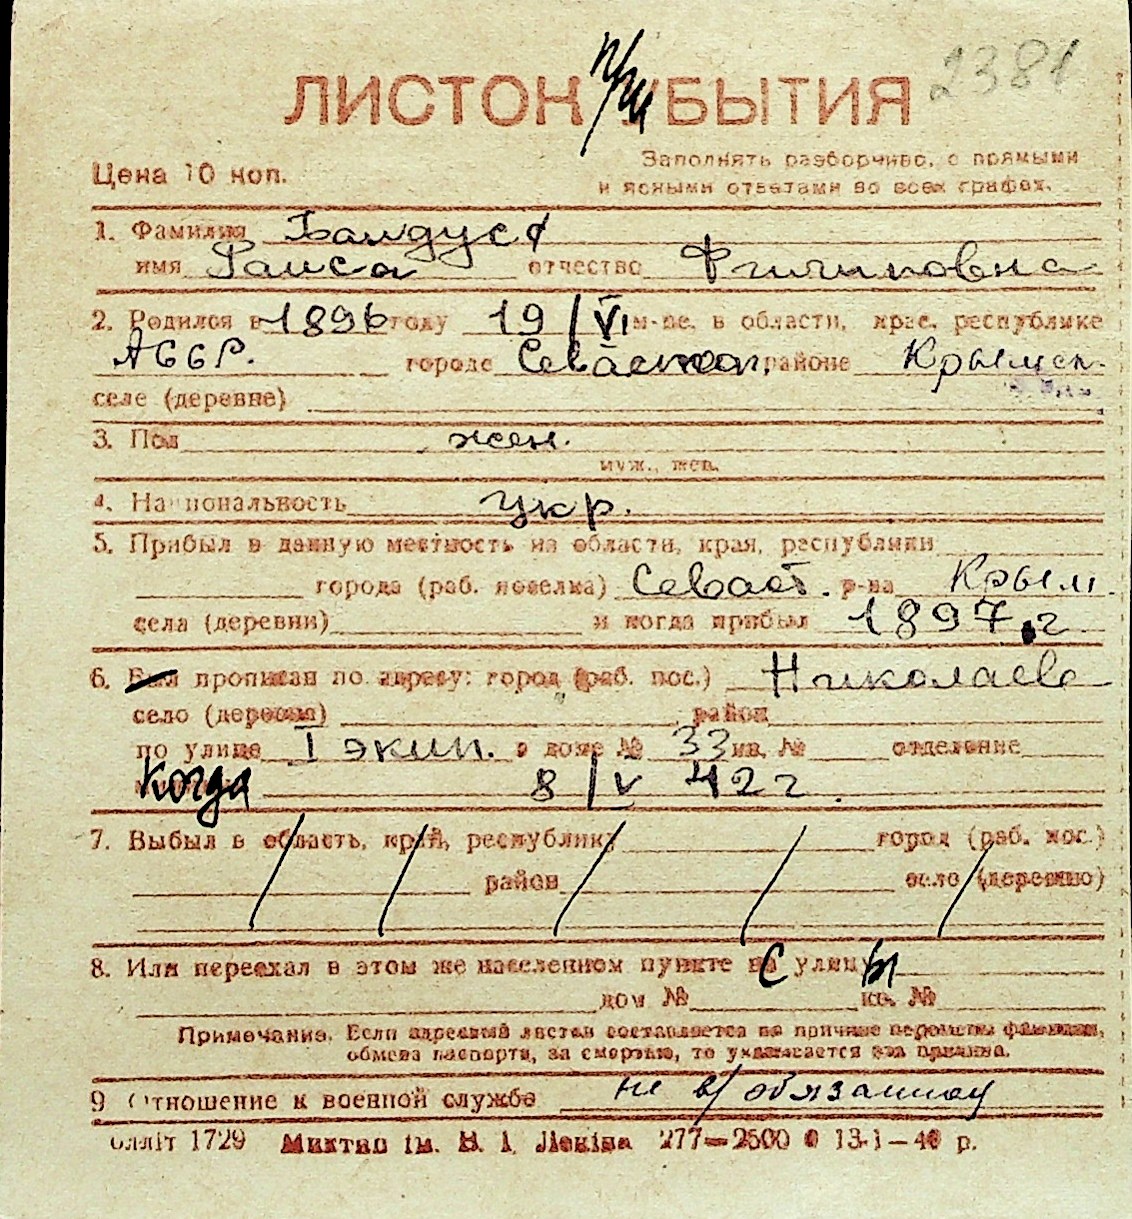 2381
ЛИСТОК п/ш УБЫТИЯ
Цена 10 коп.
Заполнять разборчиво, с прямыми
и ясными ответами во всех графах.
1. Фамилия
имя Раиса отчество Филиповна
2. Родился в 1896 году 19/VI м-це, в области, крае, республике
АССР. городе Севастоп. районе Крымск.
селе (деревне)
3. Пол жен.
муж., жен.
4. Национальность укр.
5. Прибыл в данную местность из области, края, республики
города (раб. поселка) Севаст. р-на Крым.
села (деревни) и когда прибыл 1897 г
6. Был прописан по адресу: город (раб. пос.) Николаев
село (деревня) район
по улице I экип. в доме № 33 кв. № отделение
Когда 8/V 42 г.
7. Выбыл в область, край, республику город (раб. пос.)
район село (деревню)
8. Или переехал в этом же населенном пункте на с улицу ы
дом № кв. №
Примечание. Если адресный листок составляется по причине перемены фамилии,
обмена паспорта, за смертью, то указывается эта причина.
9 Отношение к военной службе не в/обязанная
блліт 1729 Миктип ім. В. І. Леніна 277—2500 13-1—40 р.